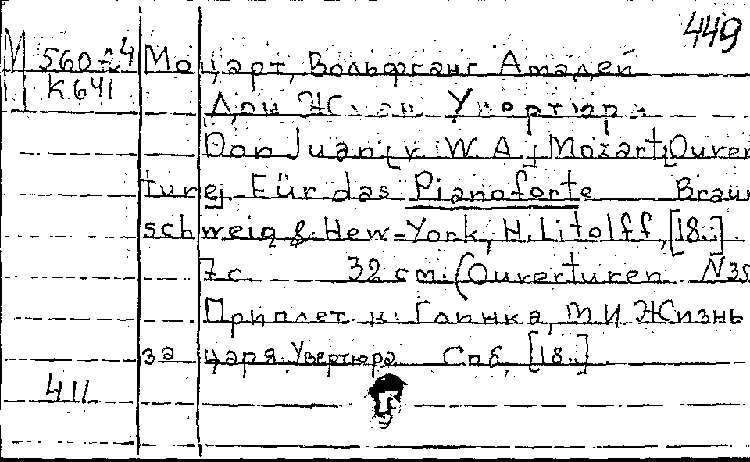 449
М 560-4 Моцарт, Вольфганг Амадей
К 641 Дон Жуан Увертюра
Don Juan [v. W. A.] Mozart[Ouver
ture] Für das Pianoforte Braun
schweig & New-York, H. Litolff, [18..]
7 с. 32 cm. (Ouverturen N 35
Приплет. к: Глинка, М И Жизнь
за царя. Увертюра Спб, [18..]
411